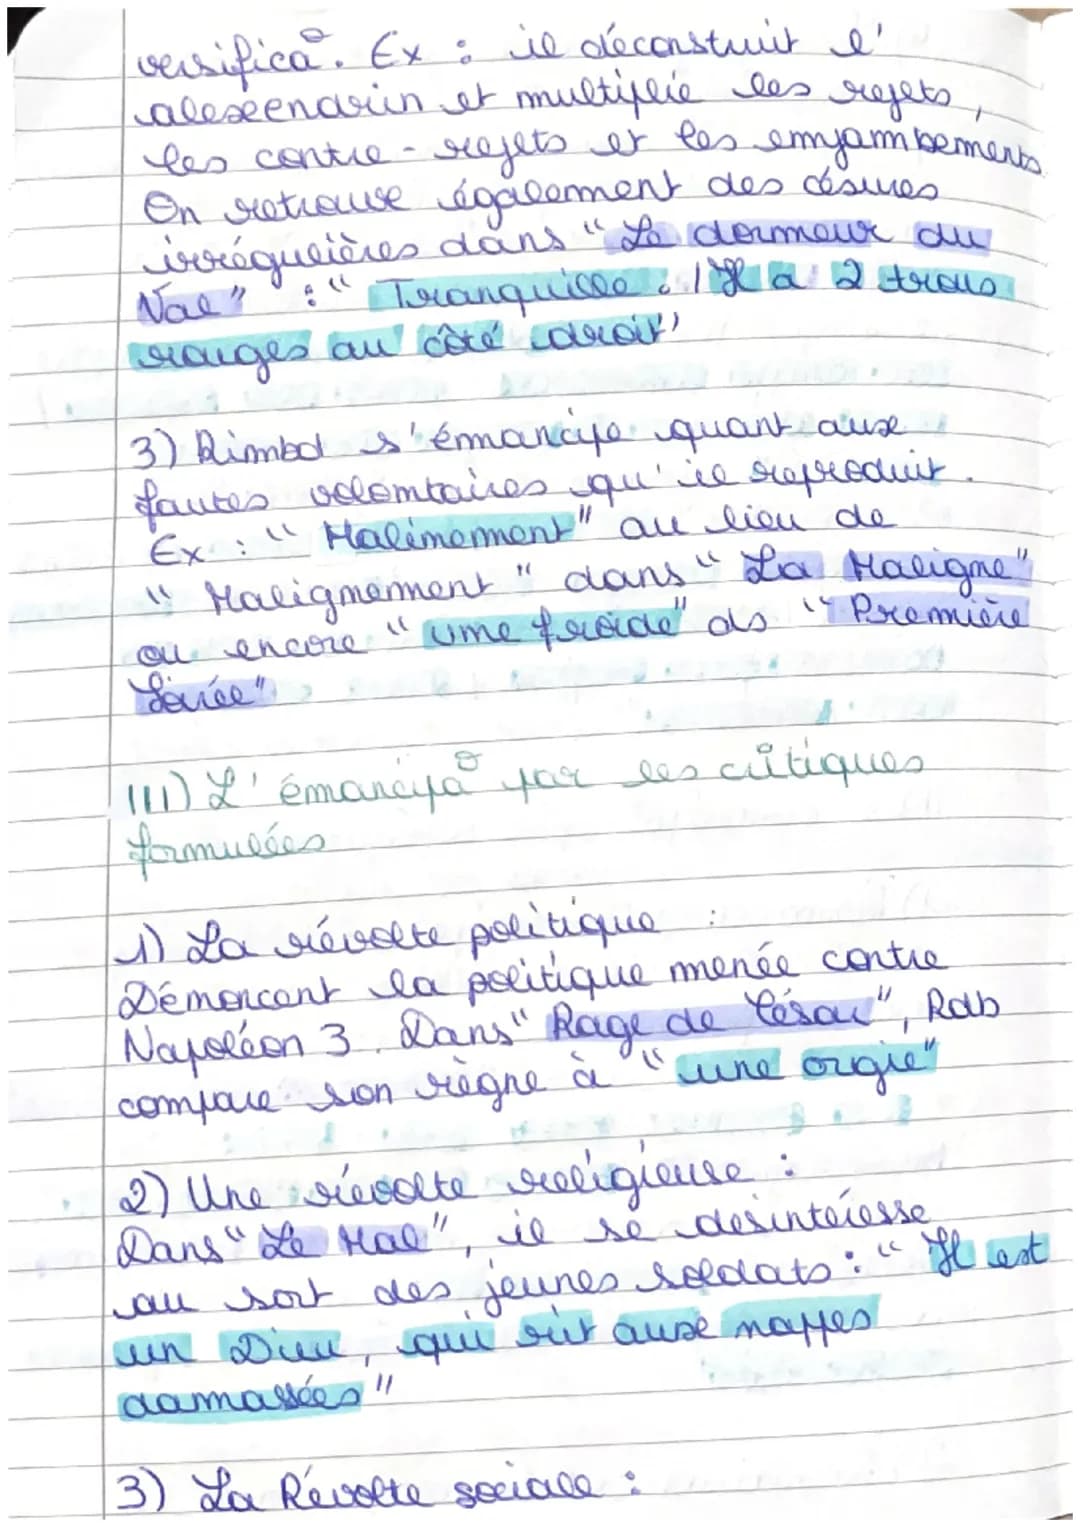 versificaᵒ. Ex : il déconstruit l'
alexendrin et multiplie les rejets,
les contre-rejets et les enjambements
On retrouve également des césures
irrégulières dans "Le dormeur du
Val" : "Tranquille. / Il a 2 trous
rouges au côté droit"
3) Rimbd s'émancipe quant aux
fautes volontaires qu'il reproduit.
Ex : "Malinement" au lieu de
"Malignement" dans "La Maligne"
ou encore "une froide" ds "Première
Soirée"
III) L'émancipaᵒ par les critiques
formulées
1) La révolte politique :
Dénoncent la politique menée contre
Napoléon 3. Dans "Rage de César", Rdb
compare son règne à "une orgie"
2) Une révolte religieuse :
Dans "Le Mal", il se desintéresse
au sort des jeunes soldats : "Il est
un Dieu, qui rit aux nappes
damassées"
3) La Révolte sociale :